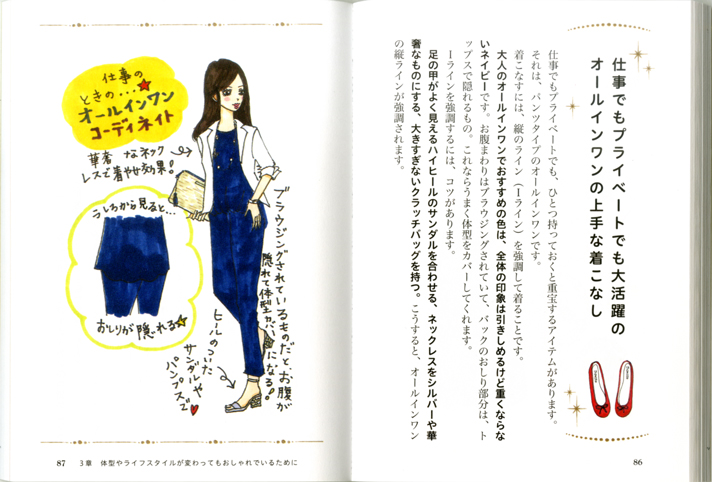 仕事でもプライベートでも大活躍の
オールインワンの上手な着こなし
仕事でもプライベートでも、ひとつ持っておくと重宝するアイテムがあります。
それは、パンツタイプのオールインワンです。
着こなすには、縦のライン（Iライン）を強調して着ることです。
大人のオールインワンでおすすめの色は、全体の印象は引きしめるけど重くならな
いネイビーです。お腹まわりはブラウジングされていて、バックのおしり部分は、ト
ップスで隠れるもの。これならうまく体型をカバーしてくれます。
Iラインを強調するには、コツがあります。
足の甲がよく見えるハイヒールのサンダルを合わせる、ネックレスをシルバーや華
奢なものにする、大きすぎないクラッチバッグを持つ。こうすると、オールインワン
の縦ラインが強調されます。
86
仕事の
ときの…
オールインワン
コーディネイト
華奢なネック
レスで着やせ効果!
うしろから見ると…
おしりが隠れる
ブラウジングされているものだと、お腹が
隠れて体型カバーになる!!
ヒールのついた
サンダルや
パンプスで
87 3章 体型やライフスタイルが変わってもおしゃれでいるために